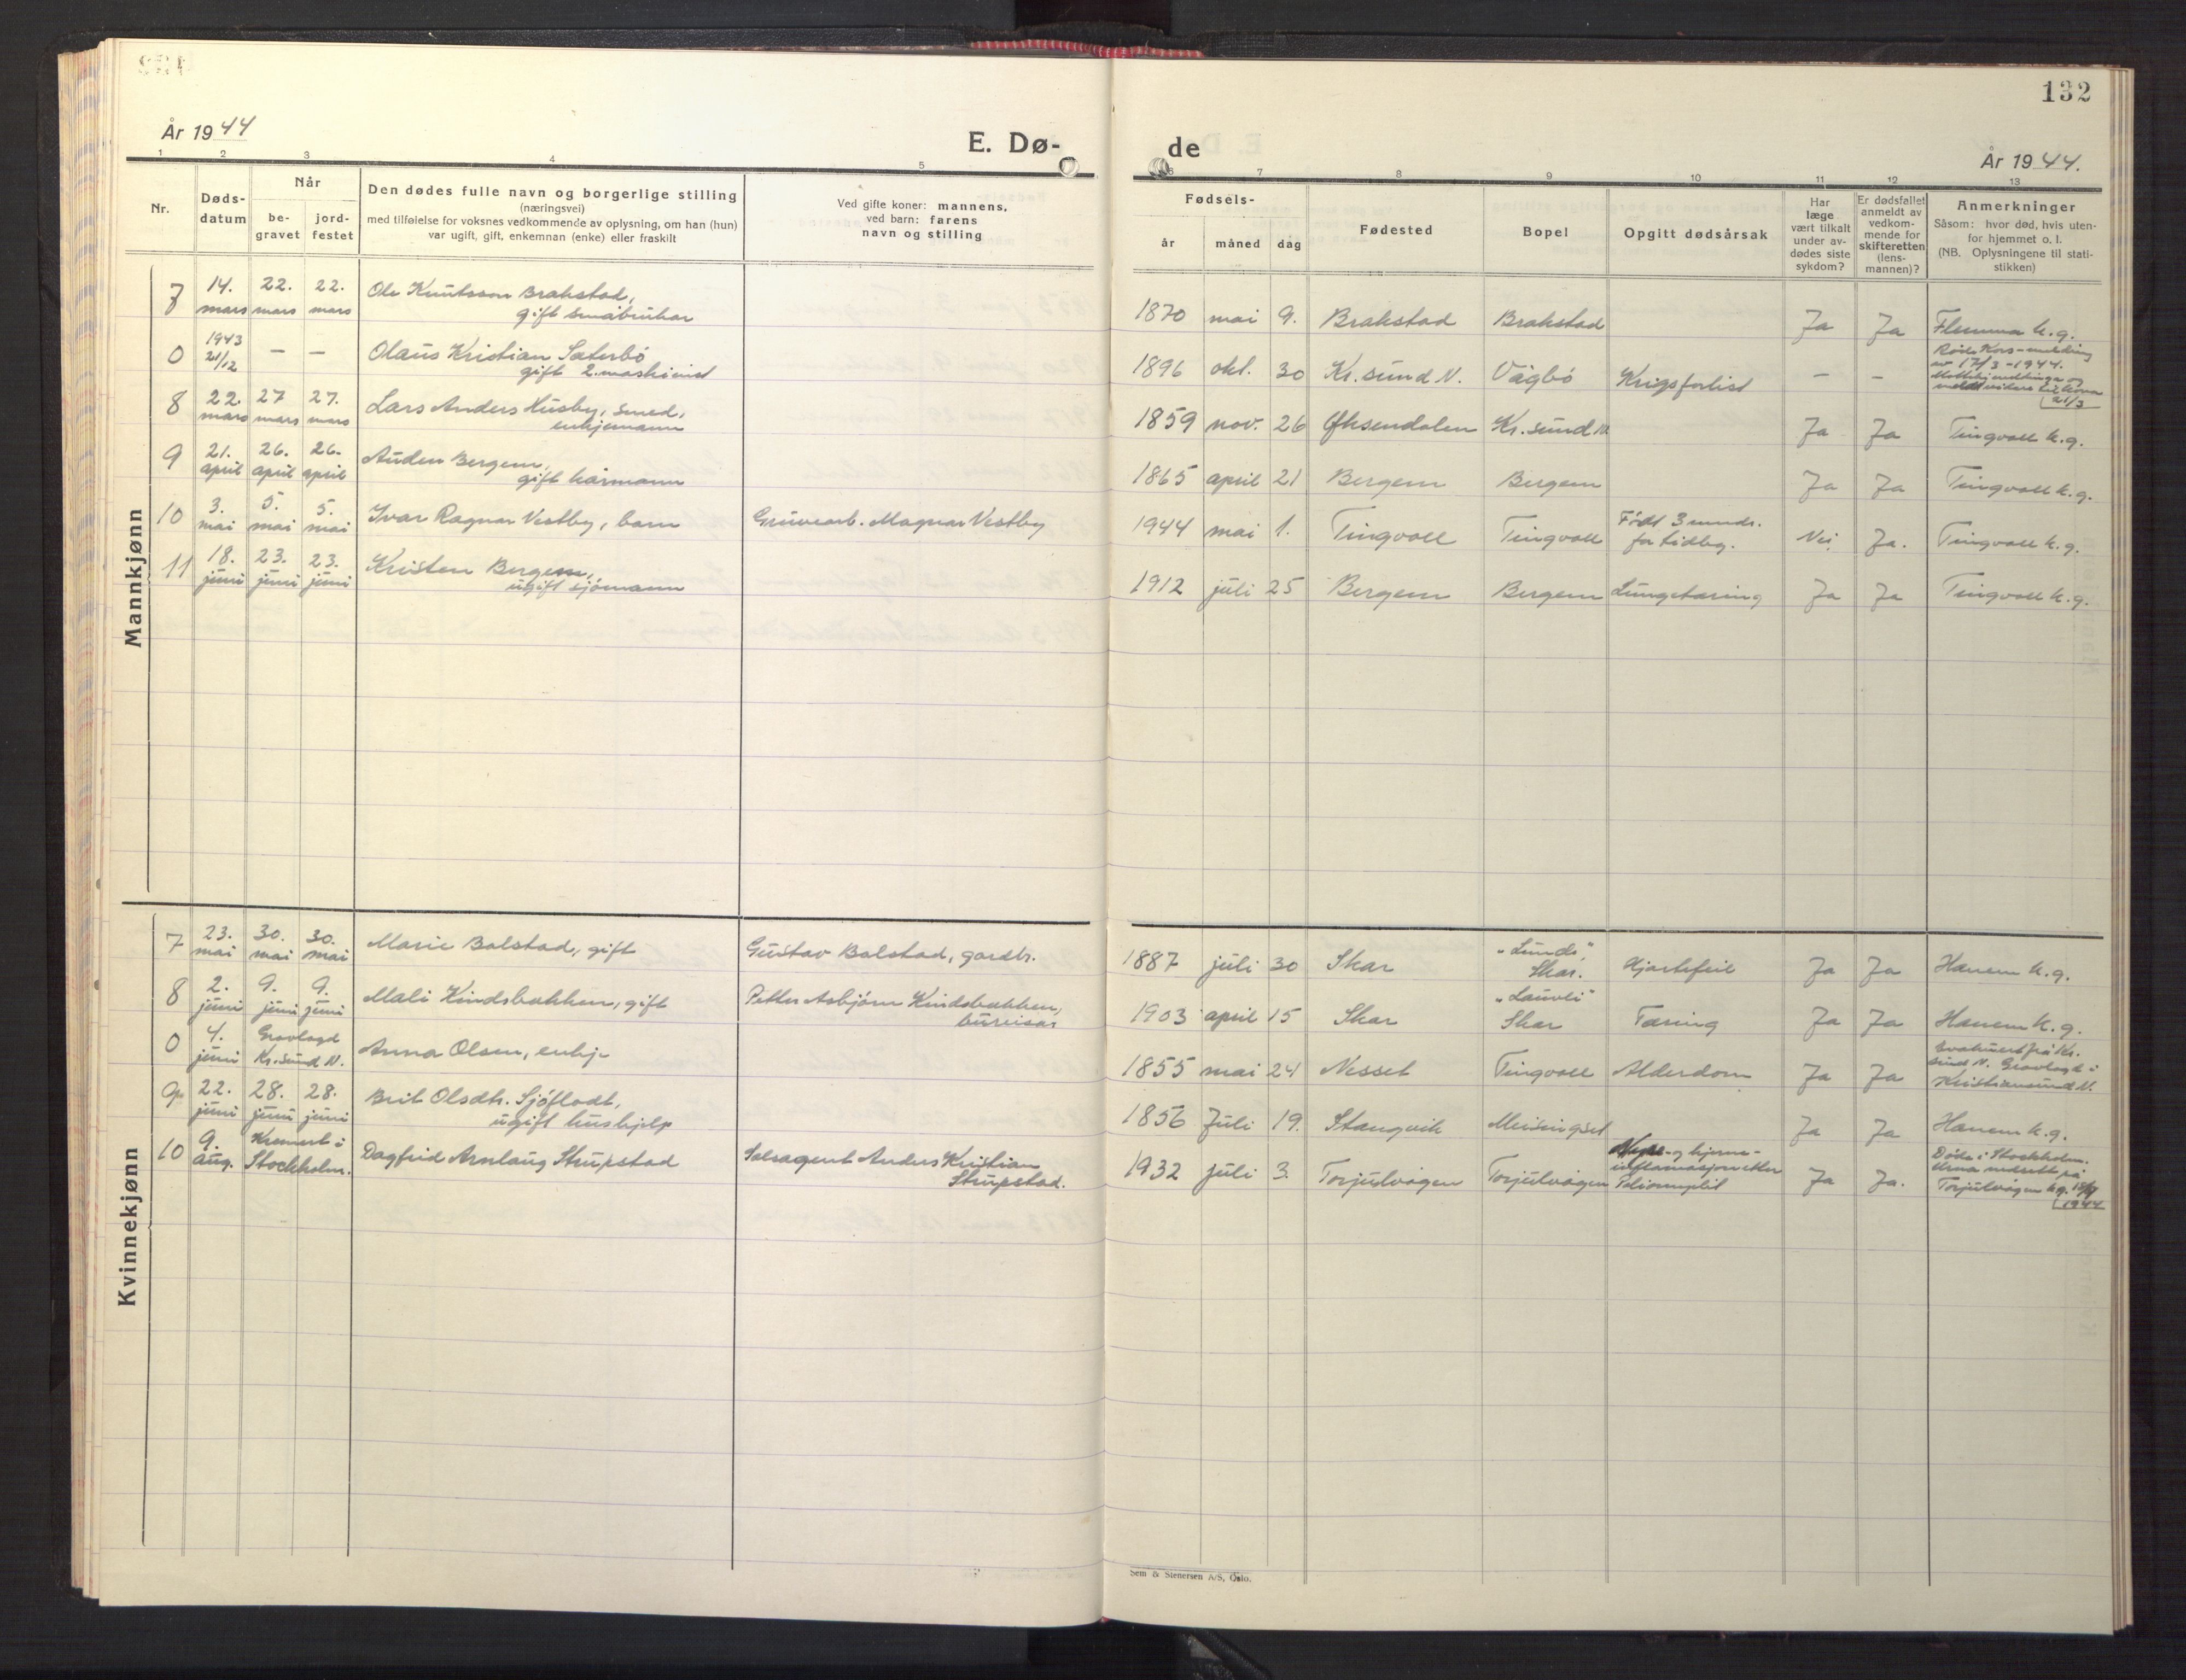 132
År 1944
E. Dø-
de
År 1944.
1 2 3 4 5
6 7 8 9 10 11 12 13
Nr.
Døds-
datum
Når
be-
gravet
jord-
festet
Den dødes fulle navn og borgerlige stilling
(næringsvei)
med tilføielse for voksnes vedkommende av oplysning, om han (hun)
var ugift, gift, enkemnan (enke) eller fraskilt
Ved gifte koner: mannens,
ved barn: farens
navn og stilling
Fødsels-
år måned dag
Fødested
Bopel
Opgitt dødsårsak
Har
læge
vært tilkalt
under av-
dødes siste
sykdom?
Er dødsfallet
anmeldt av
vedkom-
mende for
skifteretten
(lens-
mannen)?
Anmerkninger
Såsom: hvor død, hvis uten-
for hjemmet o. l.
(NB. Oplysningene til stati-
stikken)
Mannkjønn
7 14. mars 22. mars 22. mars Ole Knutsson Brakstad,
gift småbruker
1870 mai 9. Brakstad Brakstad Ja Ja Flemma k.g.
0 1943 21/12 — — Olaus Kristian Sæterbø
gift 2. maskinist
1896 okt. 30 Kr.sund N. Vågbø Krigsforlist — —
Røde Kors-melding
av 17/3-1944.
21/3
8 22. mars 27 mars 27. mars Lars Anders Husby, smed,
enkjemann
1859 nov. 26 Øksendalen Kr.sund N Ja Ja Tingvoll k.g.
9 21. april 26. april 26. april Auden Bergem,
gift kårmann
1865 april 21 Bergem Bergem Ja Ja Tingvoll k.g.
10 3. mai 5. mai 5. mai Ivar Ragnar Vestby, barn Gruvearb. Magnar Vestby
1944 mai 1. Tingvoll Tingvoll Født 3 mnds.
for tidleg. Nei Ja. Tingvoll k.g.
11 18. juni 23. juni 23. juni Kristen Bergem,
ugift sjømann
1912 juli 25 Bergem Bergem Lungetæring Ja Ja Tingvoll k.g.
Kvinnekjønn
7 23. mai 30. mai 30. mai Marie Bolstad, gift Gustav Bolstad, gardbr.
1887 juli 30 Skar "Lunds",
Skar. Hjartefeil Ja Ja Hanem k.g.
8 2. juni 9. juni 9. juni Mali Kindsbækken, gift Petter Asbjørn Kindsbækken,
bureisar
1903 april 15 Skar "Lauvli"
Skar Tæring Ja Ja Hanem k.g.
0 4. juni Gravlagd
Kr.sund N. Anna Olsen, enkje
1855 mai 24 Nesset Tingvoll Alderdom Ja Ja Evakuert frå Kr.
sund N. Gravlagd i
Kristiansund N.
9 22. juni 28. juni 28. juni Brit Olsdtr. Sjøflodt,
ugift hushjelp
1856 Juli 19. Stangvik Meisingset Ja Ja Hanem k.g.
10 9. aug. Kremert i
Stockholm. Dagfrid Arnlaug Strupstad Salsagent Anders Kristian
Strupstad.
1932 juli 3. Torjulvågen Torjulvågen
og hjerne-
inflamasjon etter
Ja Ja. Døde i Stockholm.
Urna nedsett på
Torjulvågen k.g.
1944
Sem & Stenersen A/S, Oslo.